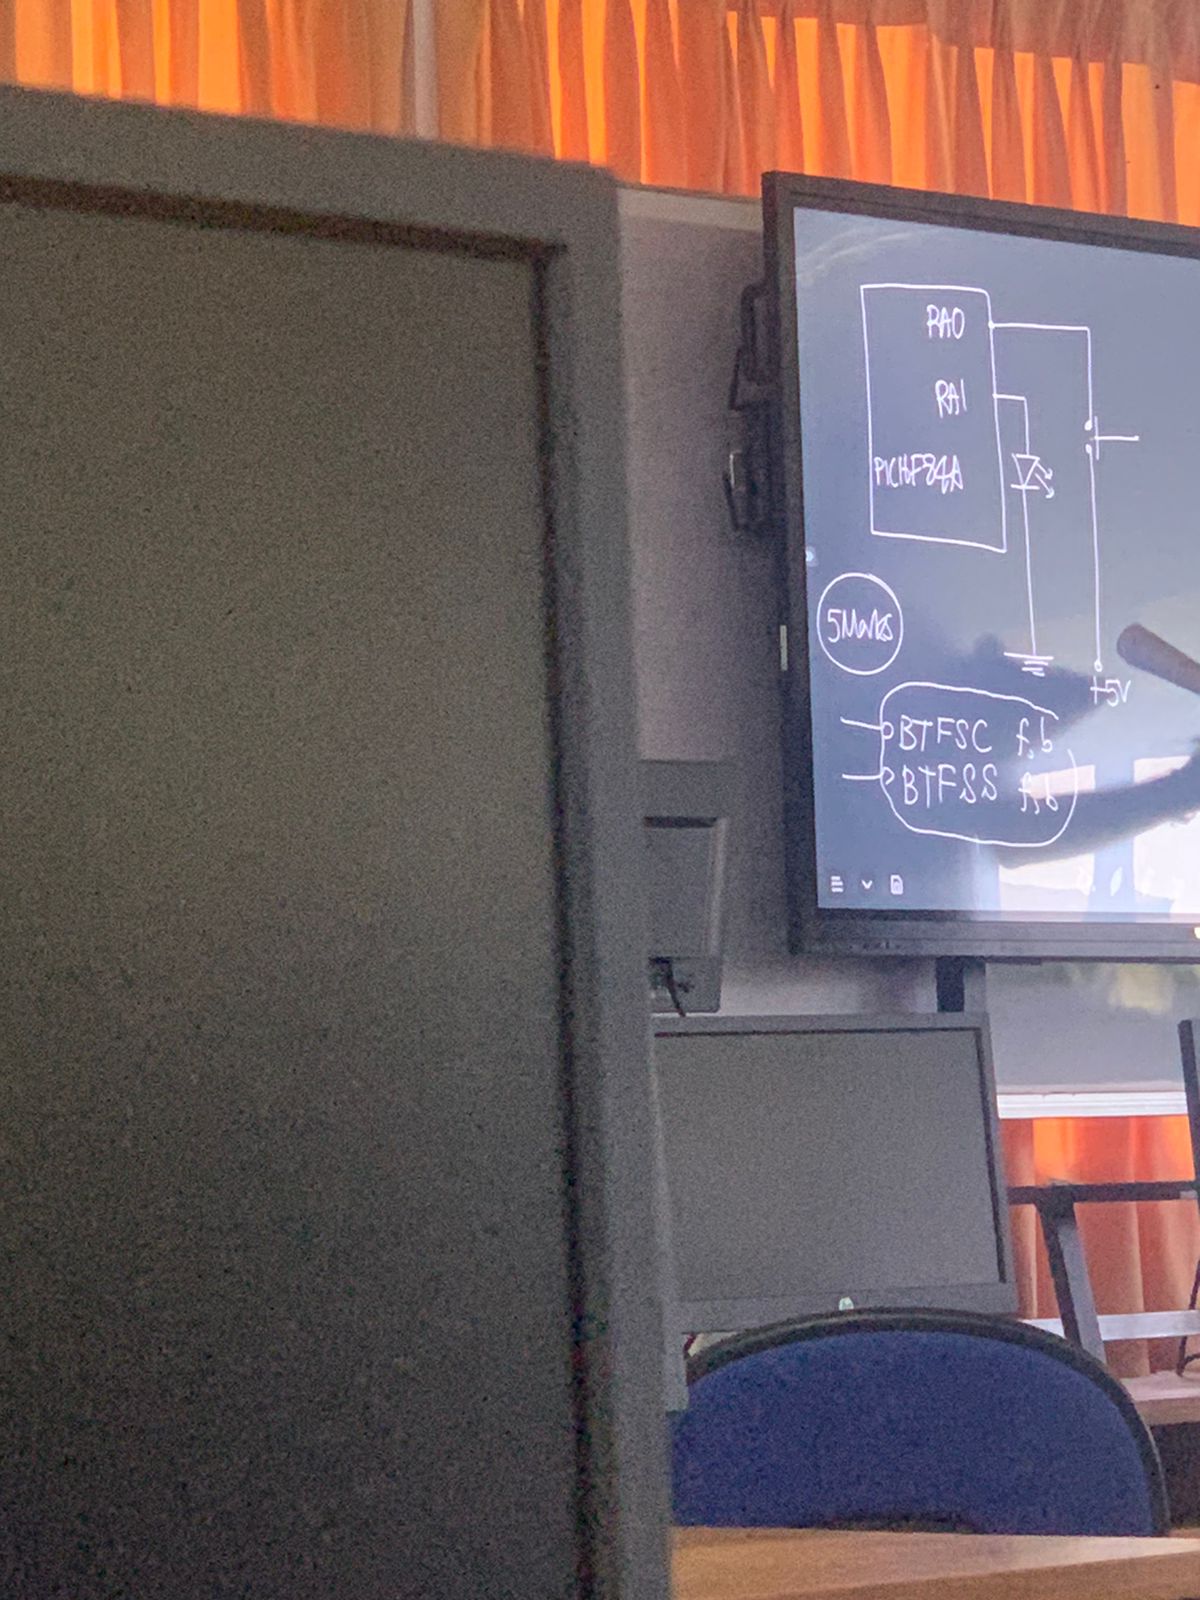 RA0
RA1
PIC16F84A
5Marks
+5V
BTFSC f,b
BTFSS f,b